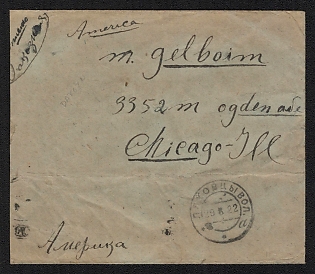 America
M. gelboim
3352 m ogden ade
Chicago-Ill
Америка